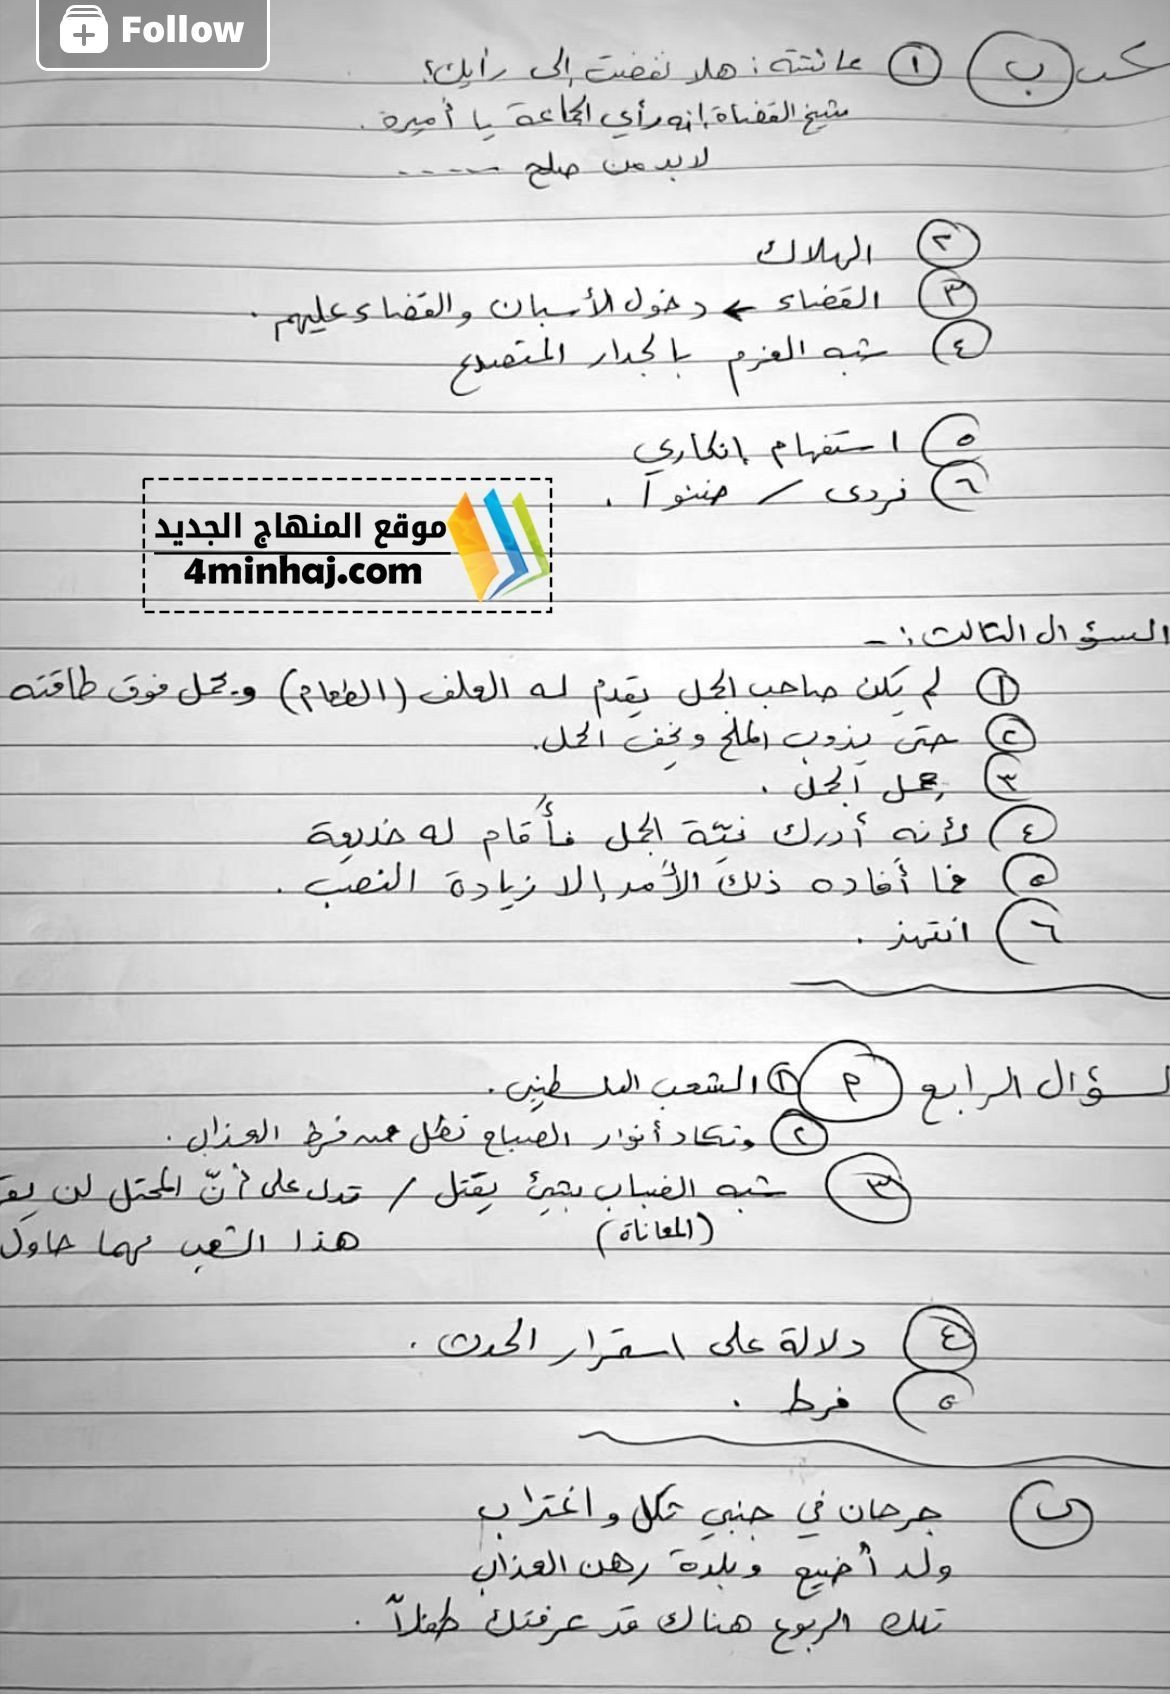 Follow
ب ١ عائشة: هلا نفضت إلى رأيك؟
شيخ القضاة: إنه رأي الجماعة يا أميرة.
لا بد من صلح -----
٢ الهلاك
٣ القضاء ← دخول الأسبان والقضاء عليهم.
٤ شبه العزم بالجدار المتصدع
٥ استفهام إنكاري
٦ فردى / ضننوا.
موقع المنهاج الجديد
4minhaj.com
السؤال الثالث: -
١ لم يكن صاحب الجمل يقدم له العلف (الطعام) ويحمل فوق طاقته
٢ حتى يذوب الملح ويخف الحمل.
٣ الجمل.
٤ لأنه أدرك نيّة الجمل فأقام له خديعة
٥ فما أفاده ذلك الأمر إلا زيادة النصب.
٦ انتهز.
لسؤال الرابع ٢ ١ الشعب الفلسطيني.
٢ وتكاد أنوار الصباح تطل من فرط العذاب.
٣ شبه الضباب بشيء يقتل / تدل على أنّ المحتل لن
(المعاناة) هذا الشعب مهما حاول
٤ دلالة على استمرار الحدث.
٥ فرط.
ب جرحان في جنبي ثكل واغتراب
ولد أضيع وبلدة رهن العذاب
تلك الربوع هناك قد عرفتك طفلاً.